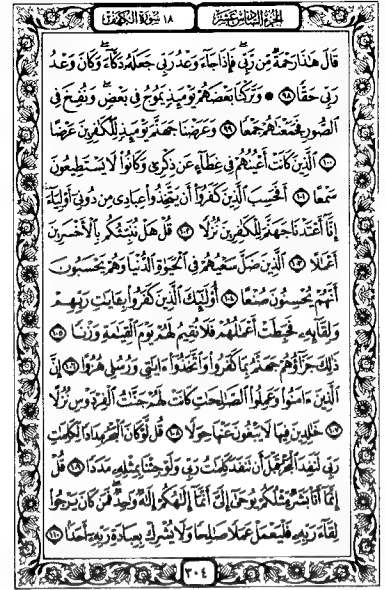 الجزء السادس عشر
١٨ سورة الكهف
قَالَ هَٰذَا رَحْمَةٌ مِّن رَّبِّي فَإِذَا جَآءَ وَعْدُ رَبِّي جَعَلَهُۥ دَكَّآءَ وَكَانَ وَعْدُ
رَبِّي حَقًّا ٩٨ وَتَرَكْنَا بَعْضَهُمْ يَوْمَئِذٍ يَمُوجُ فِي بَعْضٍ وَنُفِخَ فِي
ٱلصُّورِ فَجَمَعْنَٰهُمْ جَمْعًا ٩٩ وَعَرَضْنَا جَهَنَّمَ يَوْمَئِذٍ لِّلْكَٰفِرِينَ عَرْضًا
١٠٠ ٱلَّذِينَ كَانَتْ أَعْيُنُهُمْ فِي غِطَآءٍ عَن ذِكْرِي وَكَانُوا۟ لَا يَسْتَطِيعُونَ
سَمْعًا ١٠١ أَفَحَسِبَ ٱلَّذِينَ كَفَرُوٓا۟ أَن يَتَّخِذُوا۟ عِبَادِي مِن دُونِيٓ أَوْلِيَآءَ
إِنَّآ أَعْتَدْنَا جَهَنَّمَ لِلْكَٰفِرِينَ نُزُلًا ١٠٢ قُلْ هَلْ نُنَبِّئُكُم بِٱلْأَخْسَرِينَ
أَعْمَٰلًا ١٠٣ ٱلَّذِينَ ضَلَّ سَعْيُهُمْ فِي ٱلْحَيَوٰةِ ٱلدُّنْيَا وَهُمْ يَحْسَبُونَ
أَنَّهُمْ يُحْسِنُونَ صُنْعًا ١٠٤ أُو۟لَٰٓئِكَ ٱلَّذِينَ كَفَرُوا۟ بِـَٔايَٰتِ رَبِّهِمْ
وَلِقَآئِهِۦ فَحَبِطَتْ أَعْمَٰلُهُمْ فَلَا نُقِيمُ لَهُمْ يَوْمَ ٱلْقِيَٰمَةِ وَزْنًا ١٠٥
ذَٰلِكَ جَزَآؤُهُمْ جَهَنَّمُ بِمَا كَفَرُوا۟ وَٱتَّخَذُوٓا۟ ءَايَٰتِي وَرُسُلِي هُزُوًا ١٠٦ إِنَّ
ٱلَّذِينَ ءَامَنُوا۟ وَعَمِلُوا۟ ٱلصَّٰلِحَٰتِ كَانَتْ لَهُمْ جَنَّٰتُ ٱلْفِرْدَوْسِ نُزُلًا
١٠٧ خَٰلِدِينَ فِيهَا لَا يَبْغُونَ عَنْهَا حِوَلًا ١٠٨ قُل لَّوْ كَانَ ٱلْبَحْرُ مِدَادًا لِّكَلِمَٰتِ
رَبِّي لَنَفِدَ ٱلْبَحْرُ قَبْلَ أَن تَنفَدَ كَلِمَٰتُ رَبِّي وَلَوْ جِئْنَا بِمِثْلِهِۦ مَدَدًا ١٠٩ قُلْ
إِنَّمَآ أَنَا۠ بَشَرٌ مِّثْلُكُمْ يُوحَىٰٓ إِلَيَّ أَنَّمَآ إِلَٰهُكُمْ إِلَٰهٌ وَٰحِدٌ فَمَن كَانَ يَرْجُوا۟
لِقَآءَ رَبِّهِۦ فَلْيَعْمَلْ عَمَلًا صَٰلِحًا وَلَا يُشْرِكْ بِعِبَادَةِ رَبِّهِۦٓ أَحَدًۢا ١١٠
٣٠٤